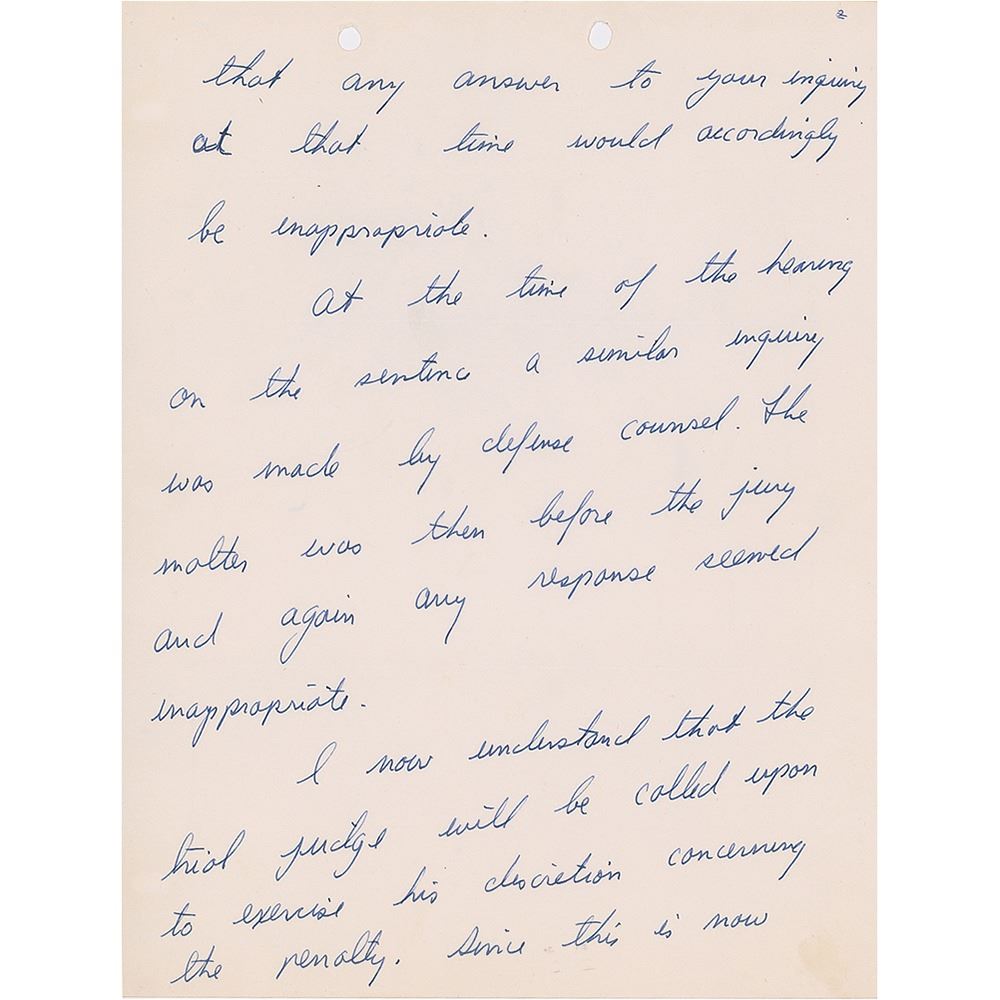 2
that any answer to your inquiry
at that time would accordingly
be inappropriate.
At the time of the hearing
on the sentence a similar inquiry
was made by defense counsel. The
matter was then before the jury
and again any response seemed
inappropriate.
I now understand that the
trial judge will be called upon
to exercise his discretion concerning
the penalty. Since this is now